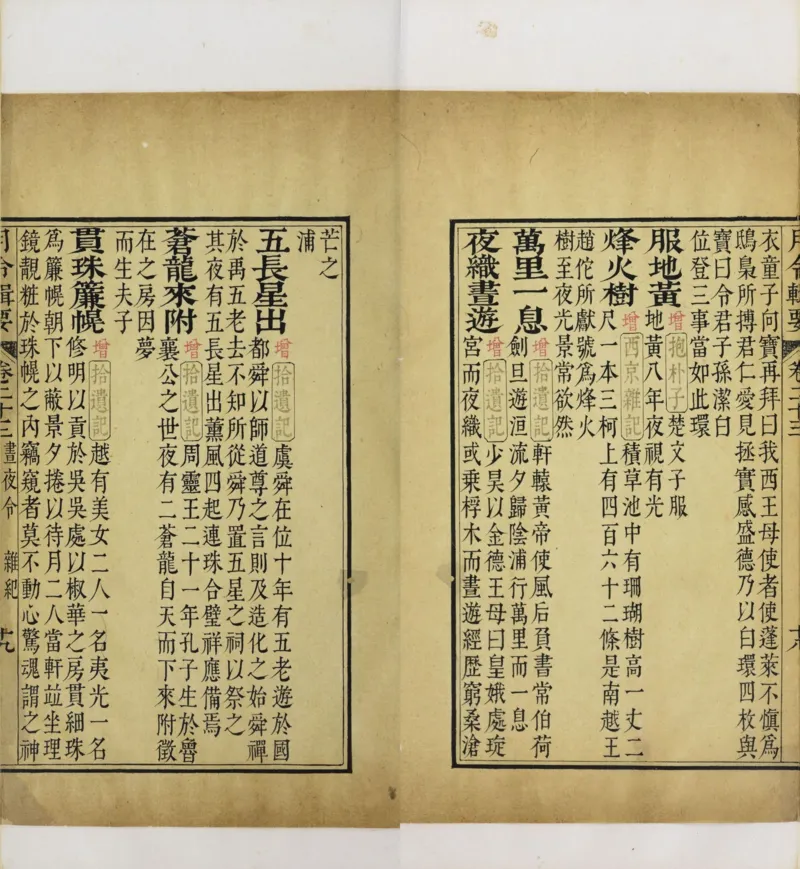 月令輯要 卷二十三
衣童子向寶再拜曰我西王母使者使蓬萊不慎爲
鴟梟所搏君仁愛見拯實感盛德乃以白環四枚與
寶曰令君子孫潔白
位登三事當如此環
服地黃 增 抱朴子 楚文子服
地黃八年夜視有光
烽火樹 增 西京雜記 積草池中有珊瑚樹高一丈二
尺一本三柯上有四百六十二條是南越王
趙佗所獻號爲烽火
樹至夜光景常欲然
萬里一息 增 拾遺記 軒轅黃帝使風后負書常伯荷
劍旦遊洹流夕歸陰浦行萬里而一息
夜織晝遊 增 拾遺記 少昊以金德王母曰皇娥處琁
宮而夜織或乘桴木而晝遊經歷窮桑滄
芒之
浦
五長星出 增 拾遺記 虞舜在位十年有五老遊於國
都舜以師道尊之言則及造化之始舜禪
於禹五老去不知所從舜乃置五星之祠以祭之
其夜有五長星出薰風四起連珠合璧祥應備焉
蒼龍來附 增 拾遺記 周靈王二十一年孔子生於魯
襄公之世夜有二蒼龍自天而下來附徵
在之房因夢
而生夫子
貫珠簾幌 增 拾遺記 越有美女二人一名夷光一名
修明以貢於吳吳處以椒華之房貫細珠
爲簾幌朝下以蔽景夕捲以待月二人當軒竝坐理
鏡靚粧於珠幌之內竊窺者莫不動心驚魂謂之神
月令輯要 卷二十三 晝夜令 雜紀